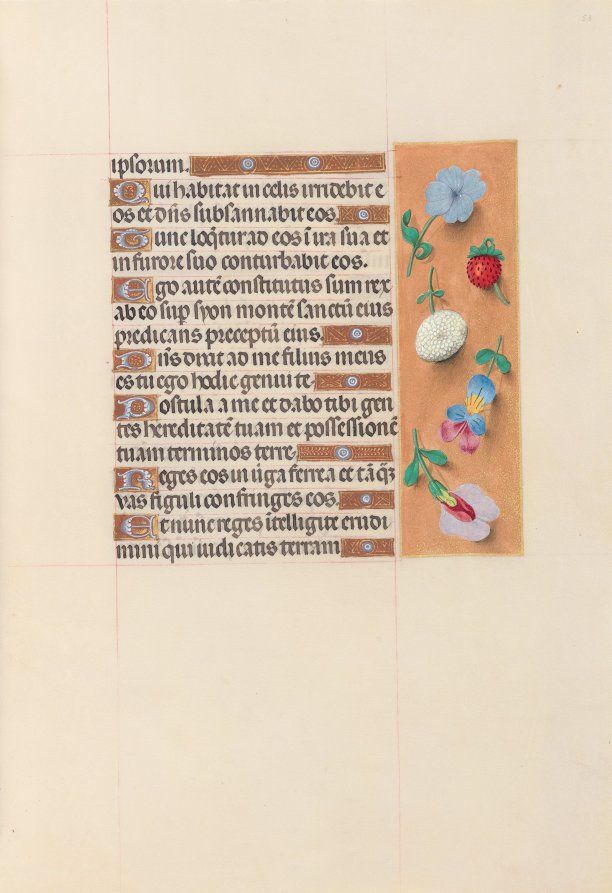 53
ipsorum.
Qui habitat in celis irridebit e
os et dñs subsannabit eos.
Tunc loq̃tur ad eos ĩ ira sua et
in furore suo conturbabit eos.
Ego autẽ constitutus sum rex
ab eo sup̱ syon montẽ sanctũ eius
predicans preceptũ eius.
Dñs dixit ad me filius meus
es tu ego hodie genui te.
Postula a me et dabo tibi gen
tes hereditatẽ tuam et possessionẽ
tuam terminos terre.
Reges eos in ũga ferrea et tãq̃z
vas figuli confringes eos.
Et nunc reges ĩtelligite erudi
mini qui iudicatis terram